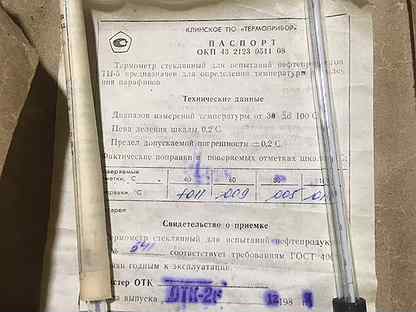 КЛИНСКОЕ ПО «ТЕРМОПРИБОР»
ПАСПОРТ
ОКП 43 2123 0511 08
Термометр стеклянный для испытаний нефтепродуктов
ТН-5 предназначен для определения температуры
парафинов
Технические данные
Диапазон измерений температуры от 30 до 100
Цена деления шкалы 0,2 С
Предел допускаемой погрешности ±0,2 С
Фактические поправки поверяемых отметках шкалы
40 60 80
°С +0,11 0,09 0,05
Свидетельство о приемке
термометр стеклянный для испытаний нефтепродук
№ 541 соответствует требованиям ГОСТ 400
годным к эксплуатации
ОТК
выпуска 12 198